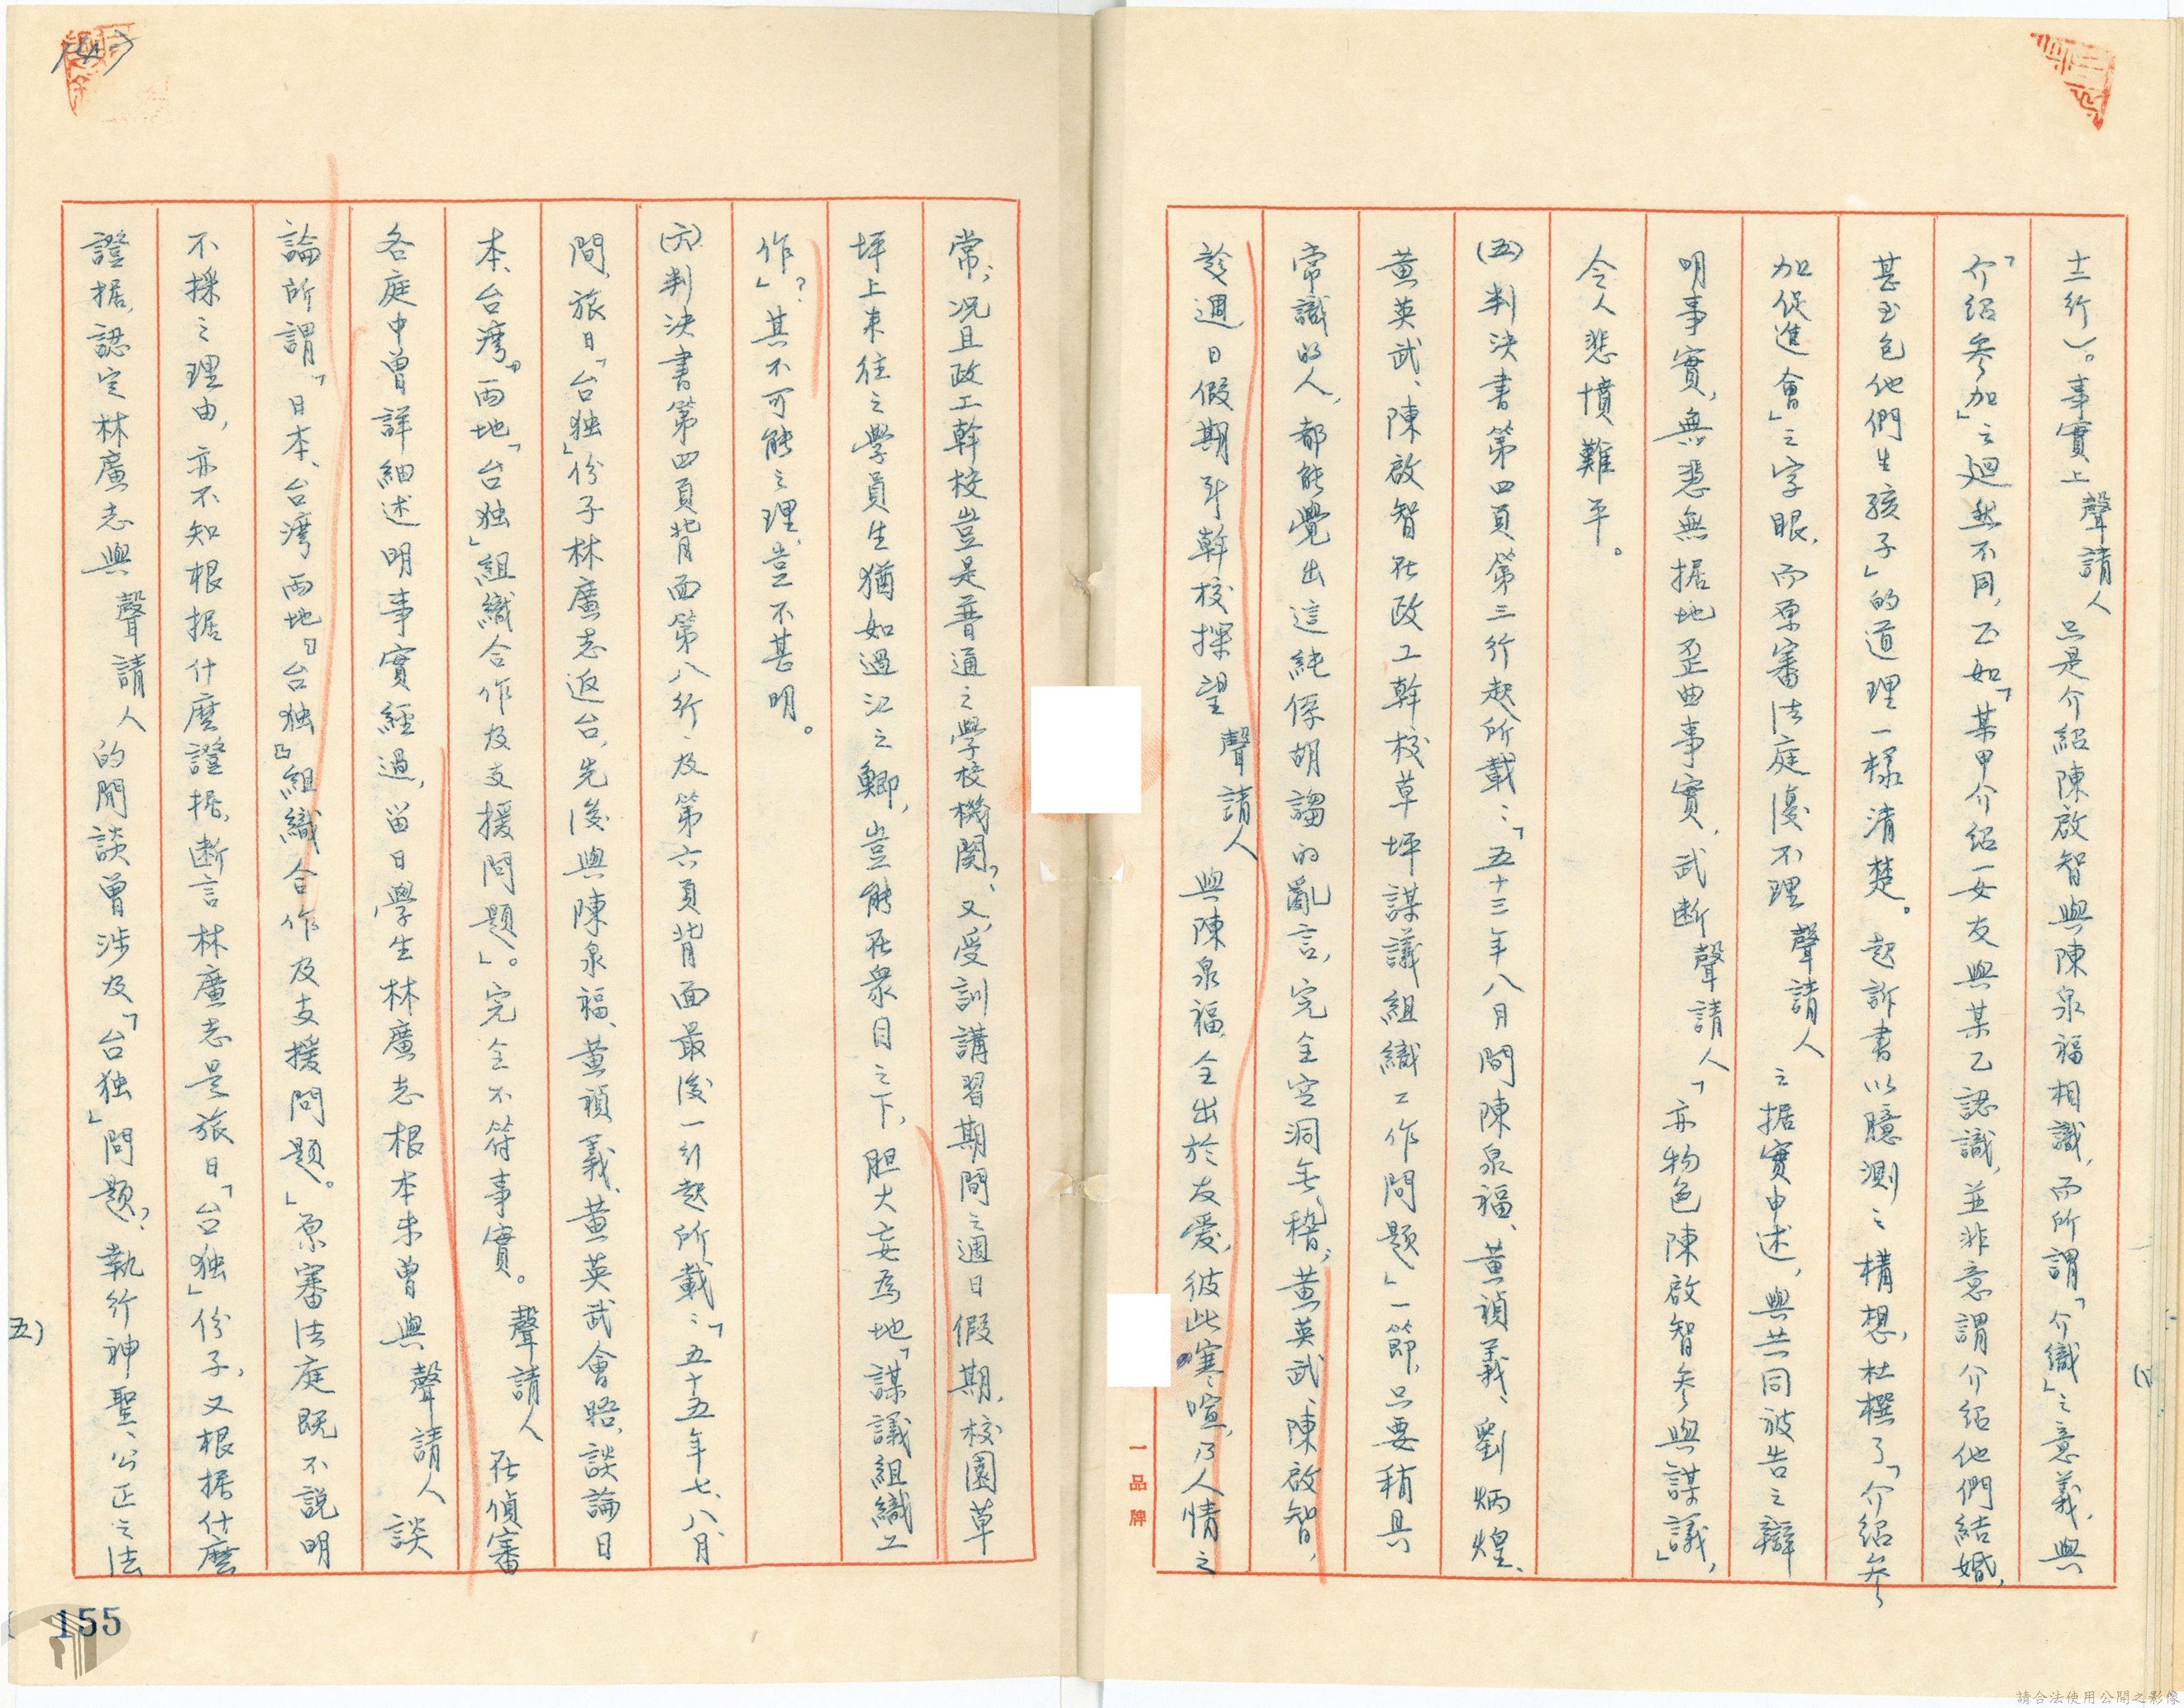 十二行）。事實上聲請人只是介紹陳啟智與陳泉福相識，而所謂「介識」之意義，與
「介紹參加」之廻然不同，正如「某甲介紹一女友與某乙認識，並非意謂介紹他們結婚，
甚至包他們生孩子」的道理一樣清楚。起訴書以臆測之構想，杜撰了「介紹參
加促進會」之字眼，而原審法庭復不理聲請人之据實申述，與共同被告之辯
明事實，無憑無据地歪曲事實，武断聲請人「亦物色陳啟智參與謀議」，
令人悲憤難平。
(五)判決書第四頁第三行起所載：「五十三年八月間陳泉福、黄禎義、劉炳煌、
黄英武、陳啟智在政工幹校草坪謀議組織工作問題」一節，只要稍具
常識的人，都能覺出這純係胡謅的亂言，完全空洞無稽；黄英武、陳啟智，
趁週日假期到幹校探望聲請人與陳泉福，全出於友愛，彼此寒暄，乃人情之
一品牌
常；况且政工幹校豈是普通之學校機関？又，受訓講習期間之週日假期，校園草
坪上來往之學員生猶如過江之鯽，豈能在衆目之下，胆大妄為地「謀議組織工
作」？其不可能之理，豈不甚明。
(六)判決書第四頁背面第八行，及第六頁背面最後一行起所載：「五十五年七、八月
間，旅日「台独」份子林廣志返台，先後與陳泉福、黄禎義、黄英武會晤，談論日
本、台灣，両地「台独」組織合作及支援問題」。完全不符事實。聲請人在偵審
各庭中曾詳細述明事實經過，留日學生林廣志根本未曾與聲請人談
論所謂「日本、台灣両地『台独』組織合作及支援問題。」原審法庭既不説明
不採之理由，亦不知根据什麼證据，断言林廣志是旅日「台独」份子，又根据什麼
證据，認定林廣志與聲請人的閒談曾涉及「台独」問題？執行神聖、公正之法
五）
155
請合法使用公開之影像